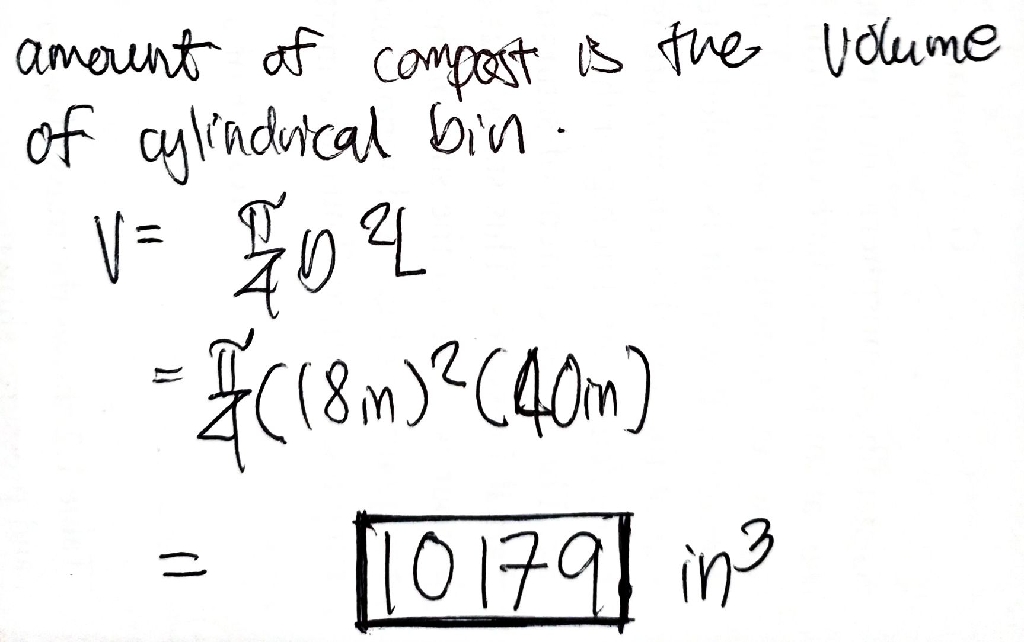 amount of compost is the volume
of cylindrical bin.
V = π/4 D²L
= π/4 (18in)² (40in)
= 10179 in³